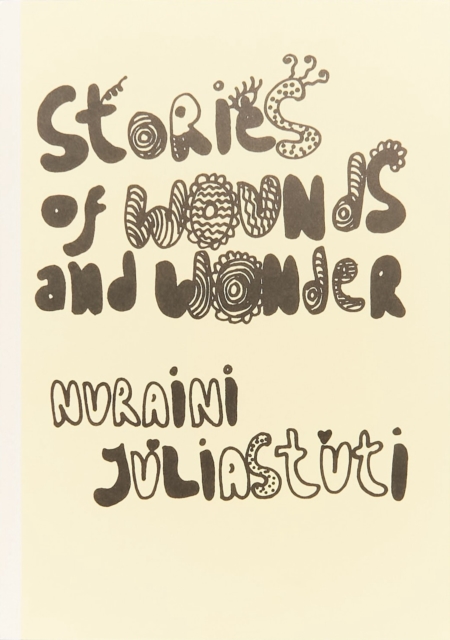 StoRieS
of WOUNdS
and WoNdeR
NURAiNi
JULiAStUti